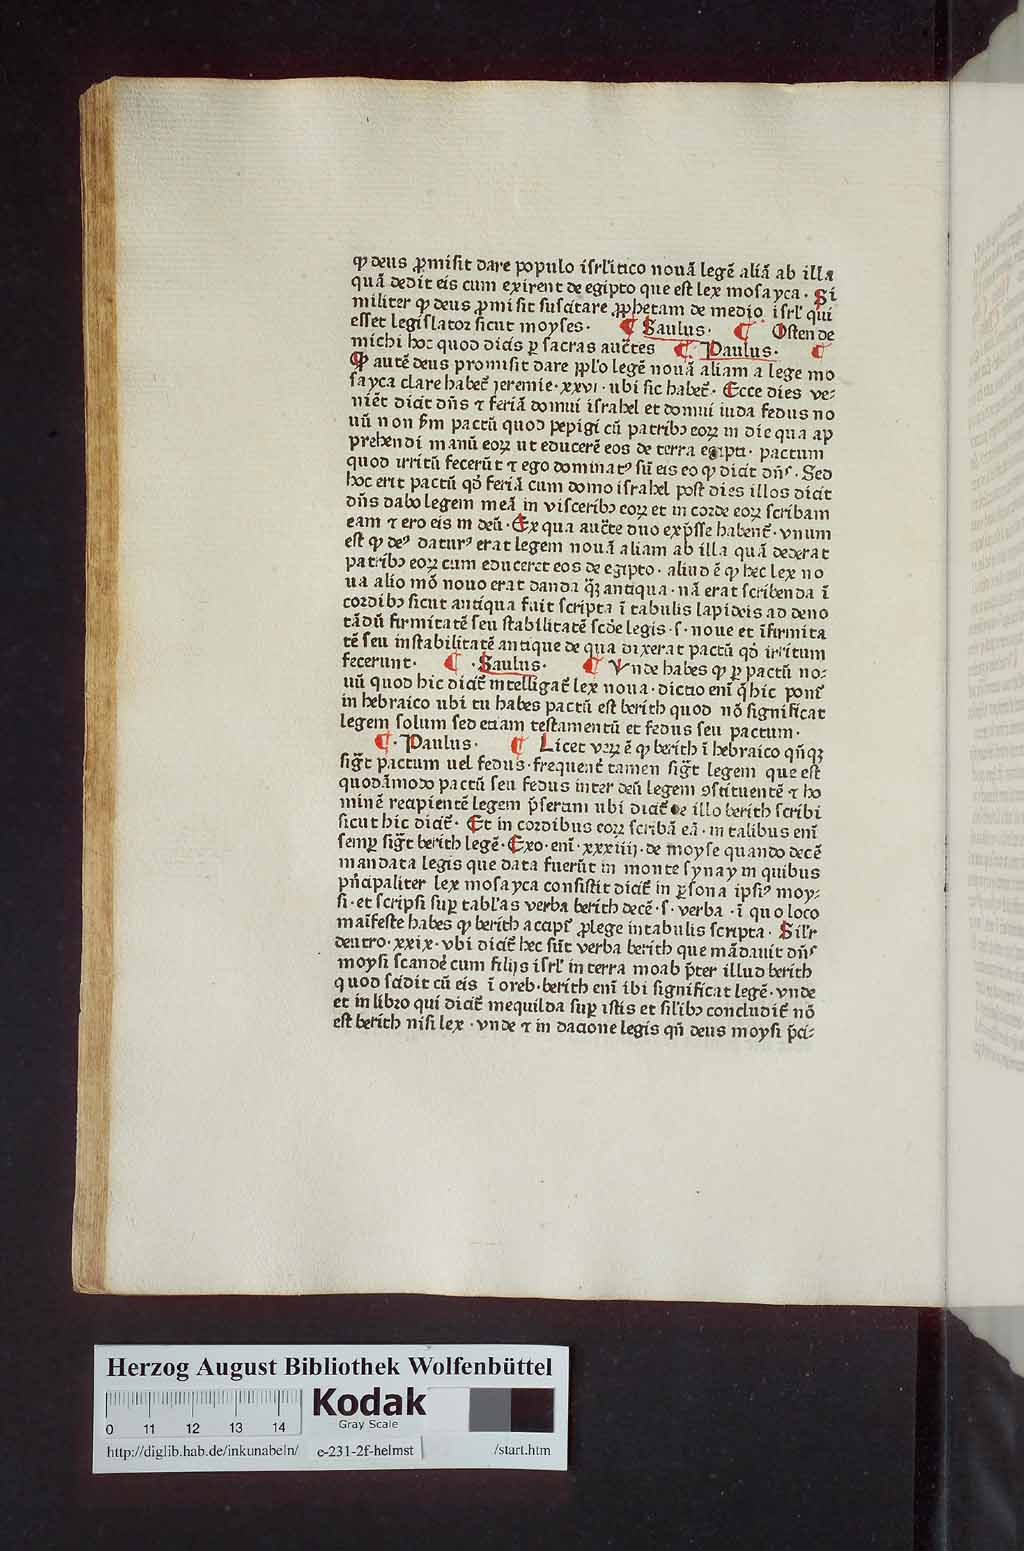 ꝙ deus ꝓmisit dare populo isrl'itico nouā legē aliā ab illa
quā dedit eis cum exirent de egipto que est lex mosayca · Si
militer ꝙ deus ꝓmisit suscitare ꝓphetam de medio isrl' qui
esset legislator sicut moyses · ¶ Saulus · ¶ Ostende
michi hoc quod dicis ꝑ sacras auc̄tes ¶ Paulus · ¶
Ꝙ autē deus promisit dare ppl'o legē nouā aliam a lege mo
sayca clare habet᷑ jeremie · xxvi · ubi sic habet᷑ · Ecce dies ve⸗
niēt dicit dn̄s ⁊ feriā domui israhel et domui iuda fedus no
uū non scd̄m pactū quod pepigi cū patribꝫ eoꝝ in die qua ap
prehendi manū eoꝝ ut educerē eos de terra egipti · pactum
quod irritū fecerūt ⁊ ego dominatꝰ sū eis eo ꝙ dicit dn̄s · Sed
hoc erit pactū qd̓ feriā cum domo israhel post dies illos dicit
dn̄s dabo legem meā in visceribꝫ eoꝝ et in corde eoꝝ scribam
eam ⁊ ero eis in deū · Ex qua auc̄te duo exp̄sse habent᷑ · vnum
est ꝙ deꝰ daturꝰ erat legem nouā aliam ab illa quā dederat
patribꝫ eoꝝ cum educeret eos de egipto · aliud ē ꝙ hec lex no
ua alio mō nouo erat danda q̄ꝫ antiqua · nā erat scribenda ī
cordibꝫ sicut antiqua fuit scripta ī tabulis lapideis ad deno
tādū firmitatē seu stabilitatē scd̄e legis · s · noue et īfirmita
tē seu instabilitatē antique de qua dixerat pactū qd̓ irritum
fecerunt · ¶ · Saulus · ¶ Vnde habes ꝙ ꝑ pactū no⸗
uū quod hic dicit᷑ intelligat᷑ lex noua · dictio enī q̄ hic ponit᷑
in hebraico ubi tu habes pactū est berith quod nō significat
legem solum sed etiam testamentū et fedus seu pactum ·
¶ · Paulus · ¶ Licet veꝝ ē ꝙ berith ī hebraico qn̄qꝫ
sig̅t pactum uel fedus · frequent᷑ tamen sig̅t legem que est
quodāmodo pactū seu fedus inter deū legem ꝯstituentē ⁊ ho
minē recipientē legem p̄sertim ubi dicit᷑ de illo berith scribi
sicut hic dicit᷑ · Et in cordibus eoꝝ scribā eā · in talibus enī
semꝑ sig̅t berith legē · Exo · enī · xxxiiij · de moyse quando decē
mandata legis que data fuerūt in monte synay in quibus
pn̄cipaliter lex mosayca consistit dicit᷑ in ꝑsona ipsiꝰ moy⸗
si · et scripsi suꝑ tabl'as verba berith decē · s · verba · ī quo loco
maīfeste habes ꝙ berith accipit᷑ ꝓ lege in tabulis scripta · Sil'r
deutro · xxix · vbi dicit᷑ hec sūt verba berith que mādauit dn̄s
moysi scandē cum filijs isrl' in terra moab p̄ter illud berith
quod scidit cū eis ī oreb · berith enī ibi significat legē · vnde
et in libro qui dicit᷑ mequilda suꝑ istis et sil'ibꝫ concludit᷑ nō
est berith nisi lex · vnde ⁊ in dacione legis qn̄ deus moysi p̄ci⸗
Herzog August Bibliothek Wolfenbüttel
0 11 12 13 14
Kodak
Gray Scale
http://diglib.hab.de/inkunabeln/ e-231-2f-helmst /start.htm